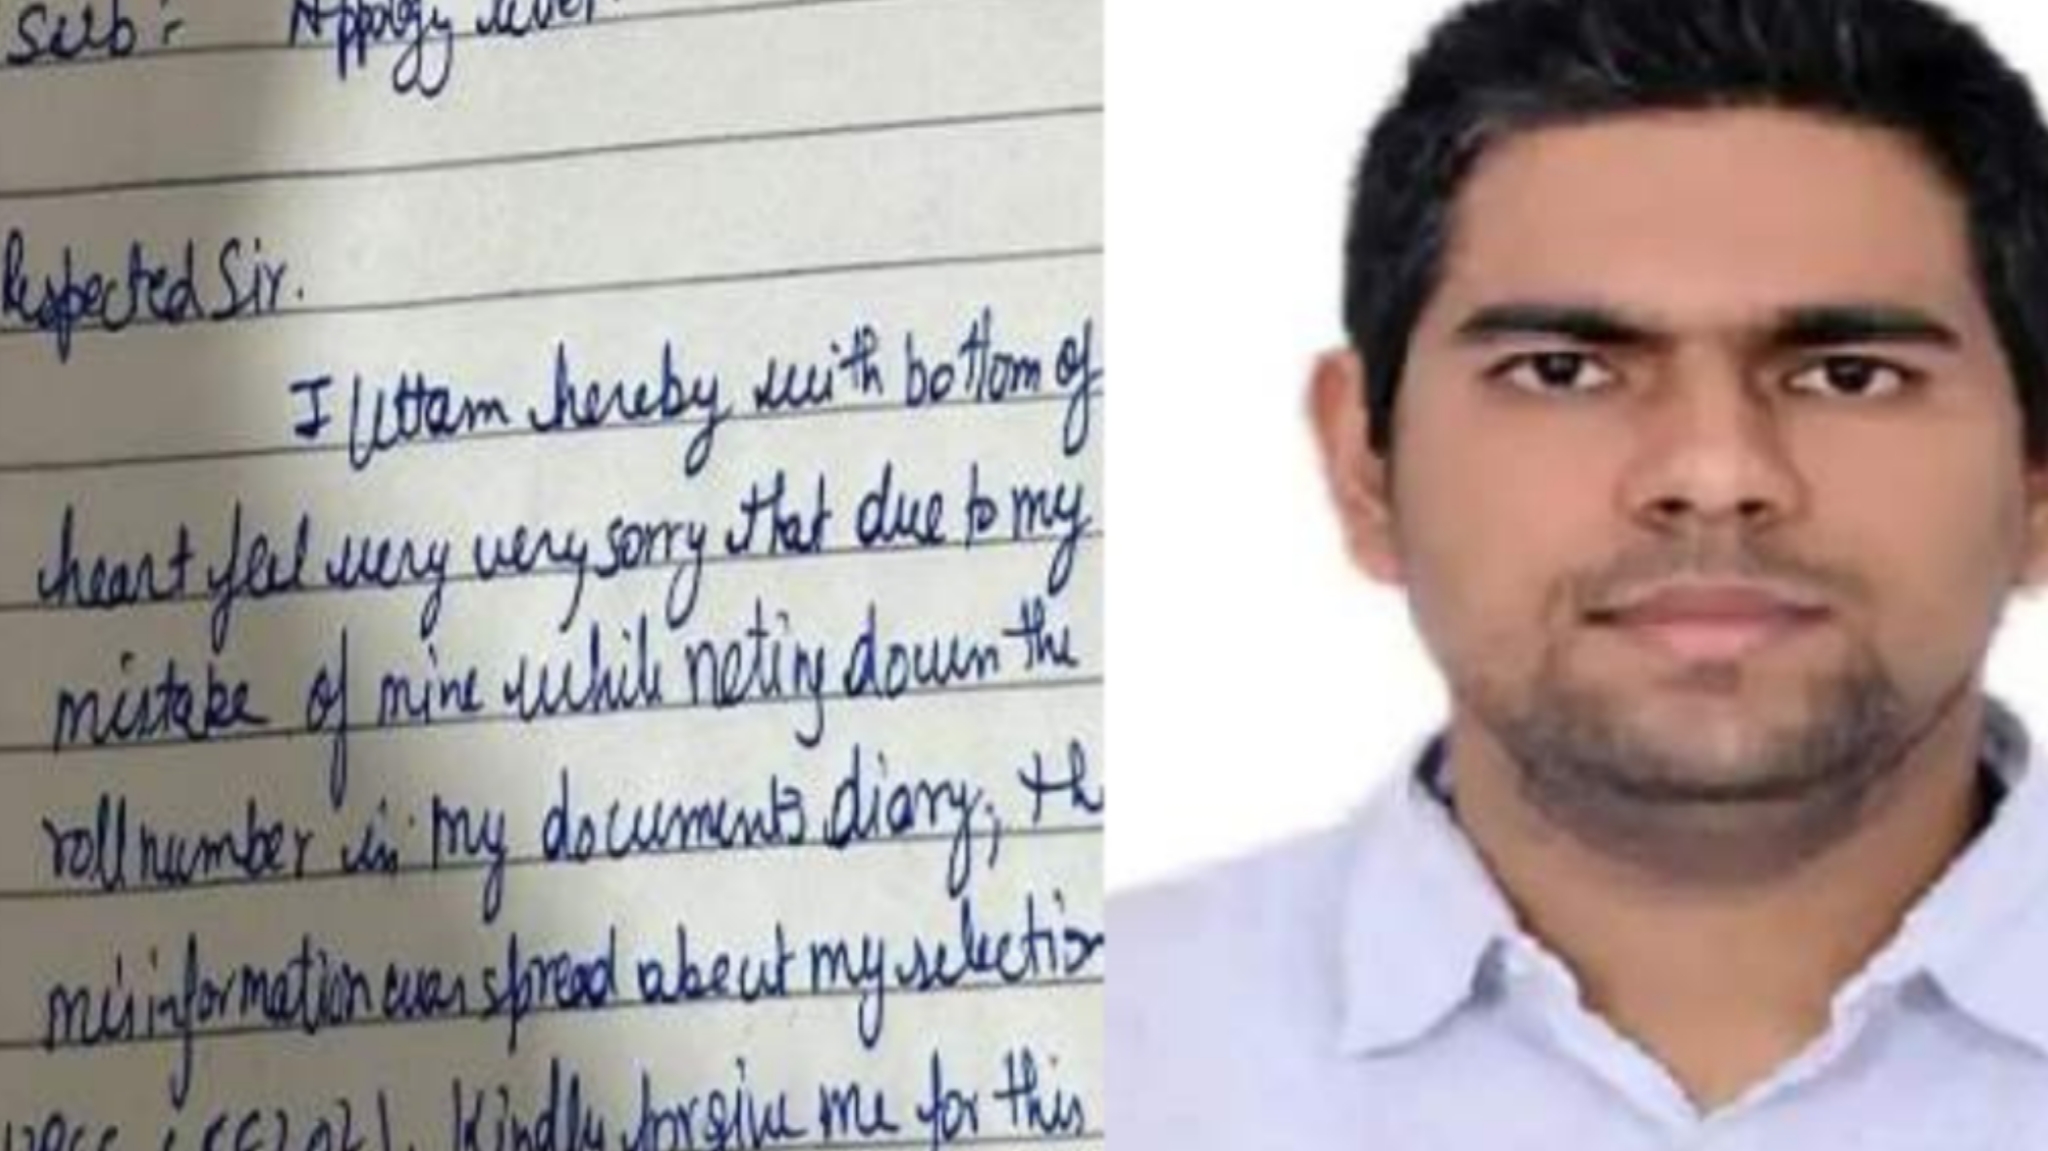 Sub :- Appology
Respected Sir.
I Uttam hereby with bottom of
heart feel very very sorry that due to my
mistake of mine while noting down the
roll number in my documents diary, th
misinformation was spread about my selection
Kindly forgive me for this